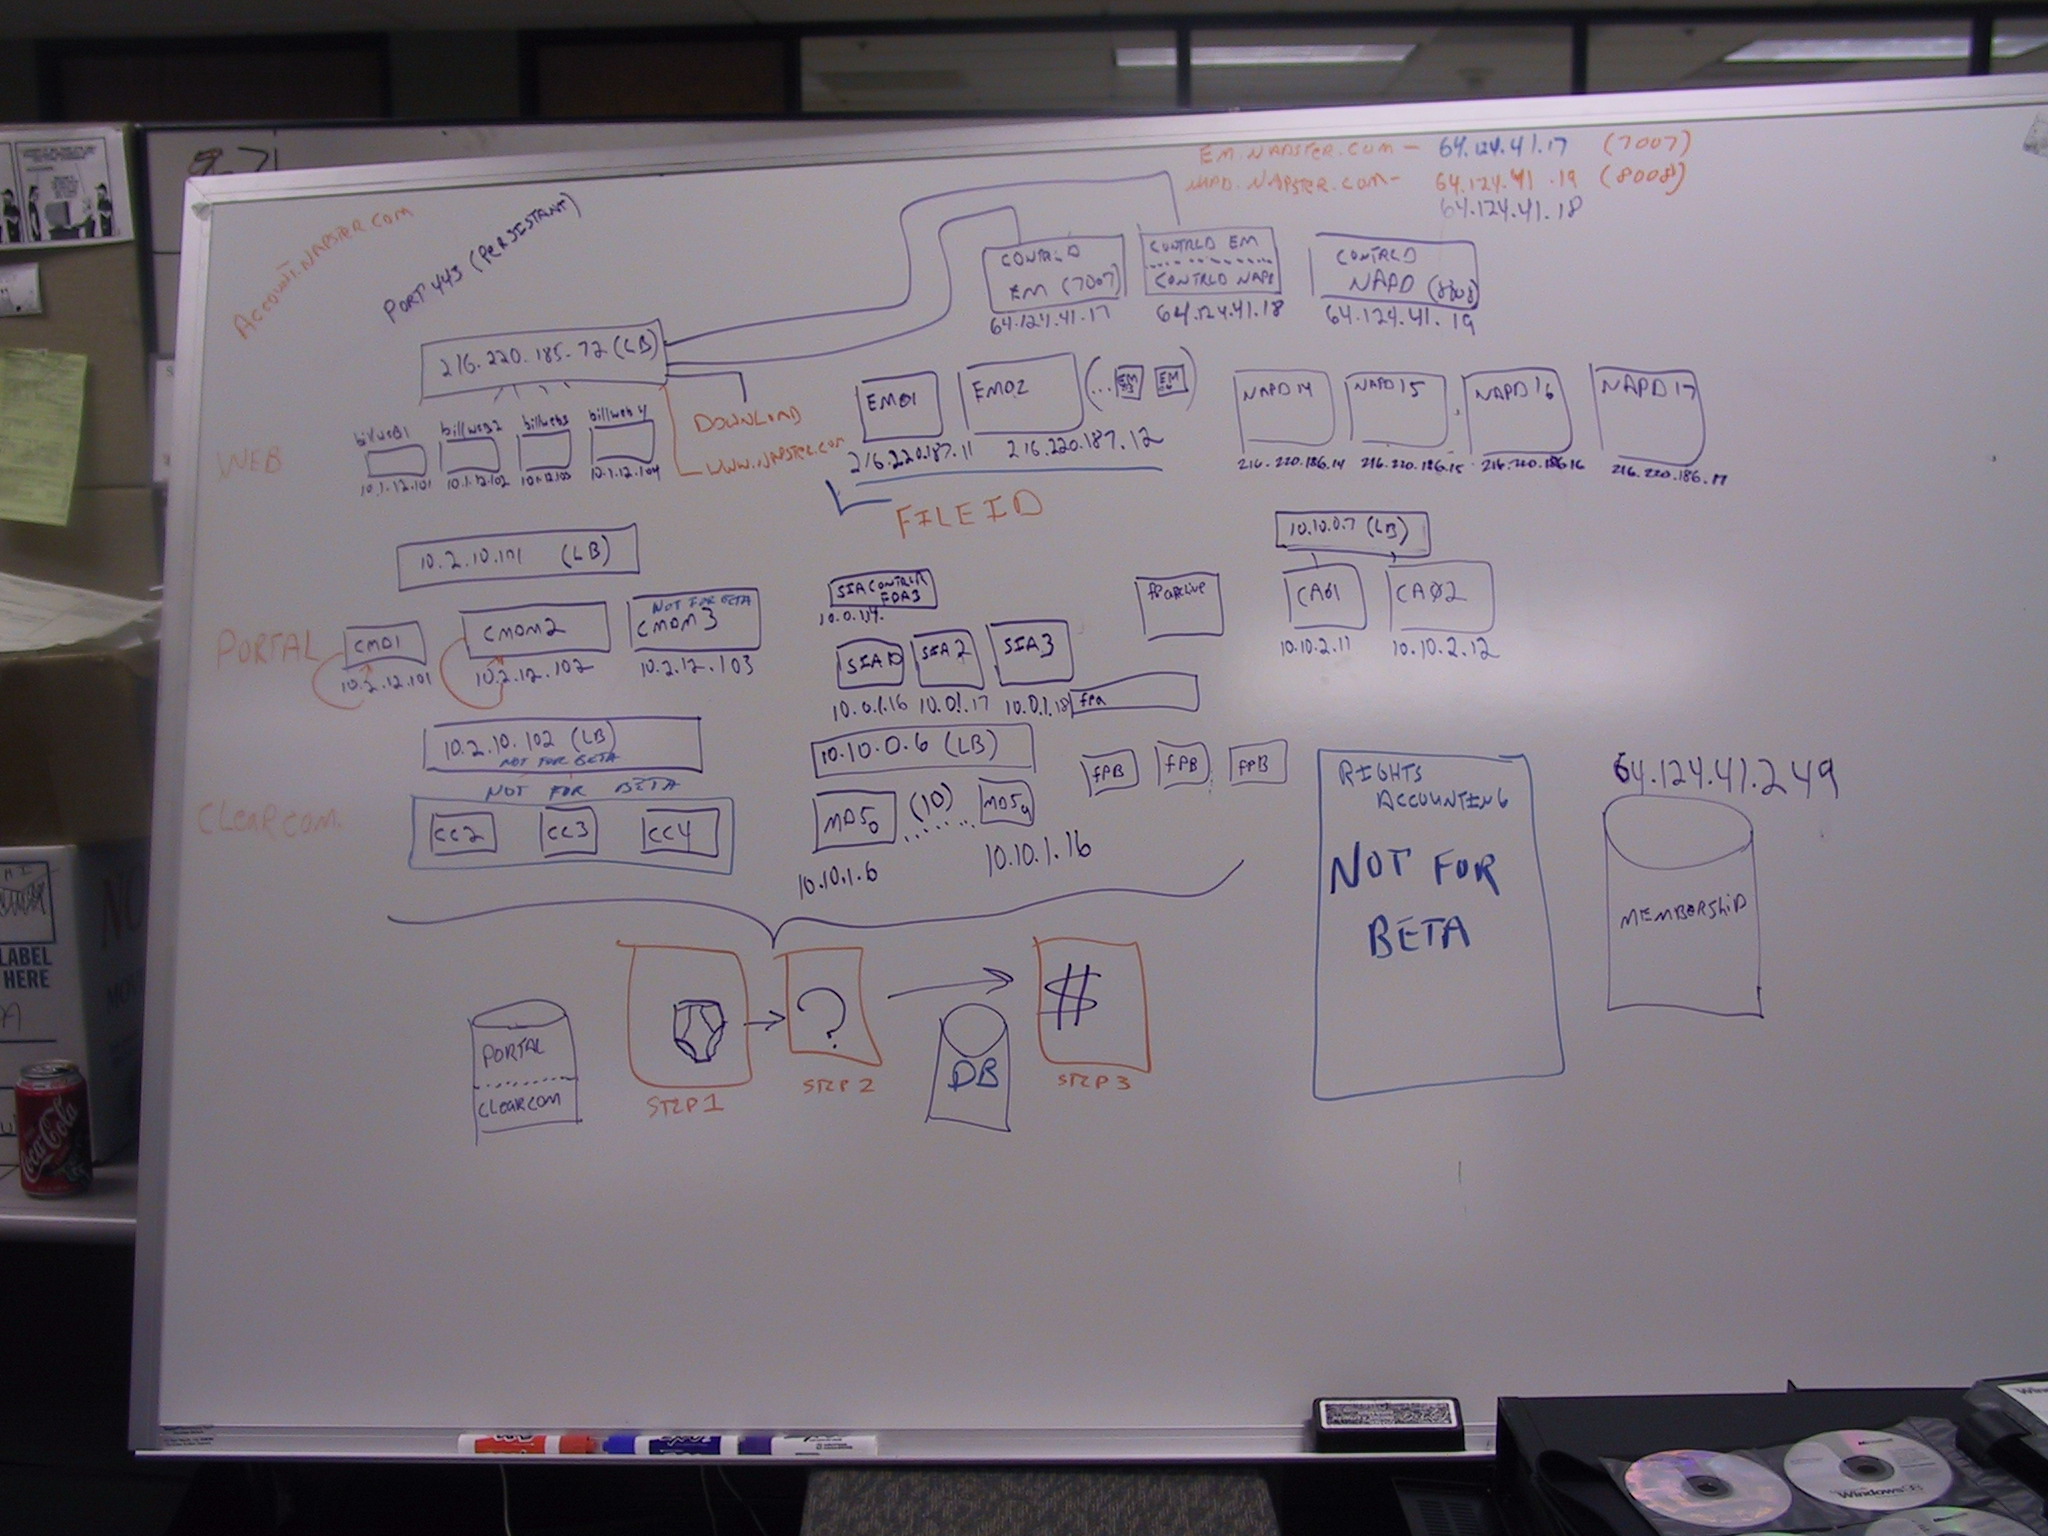 EM.NAPSTER.COM - 64.124.41.17 (7007)
NAPD.NAPSTER.COM- 64.124.41.19 (8008)
64.124.41.18
ACCOUNT.NAPSTER.COM
PORT 443 (PERSISTANT)
CONTRLD
EM (7007)
64.124.41.17
CONTRLD EM
CONTRLD NAPD
64.124.41.18
CONTRLD
NAPD (8808)
64.124.41.19
216.220.185.72 (LB)
DOWNLOAD
WWW.NAPSTER.COM
WEB
billweb1
10.1.12.101
billweb2
10.1.12.102
billweb3
10.1.12.103
billweb4
10.1.12.104
EM01
216.220.187.11
EM02
216.220.187.12
(... EM EM )
NAPD14
216.220.186.14
NAPD15
216.220.186.15
NAPD16
216.220.186.16
NAPD17
216.220.186.17
FILEID
10.2.10.101 (LB)
PORTAL
CM01
10.2.12.101
CMDM2
10.2.12.102
NOT FOR BETA
CMDM3
10.2.12.103
SIACONTRLR
10.0.1.14
SIA10
10.0.1.16
SIA2
10.0.1.17
SIA3
10.0.1.18
fpa
10.10.0.7 (LB)
CA01
10.10.2.11
CA02
10.10.2.12
10.2.10.102 (LB)
NOT FOR BETA
NOT FOR BETA
CLEARCOM.
CC2
CC3
CC4
10.10.0.6 (LB)
MD50 (10) MD59
10.10.1.6
10.10.1.16
fPB
fPB
fPB
RIGHTS
ACCOUNTING
NOT FOR
BETA
64.124.41.249
MEMBERSHIP
PORTAL
CLEARCOM
STEP 1
?
STEP 2
DB
STEP 3
LABEL
HERE
Coca-Cola